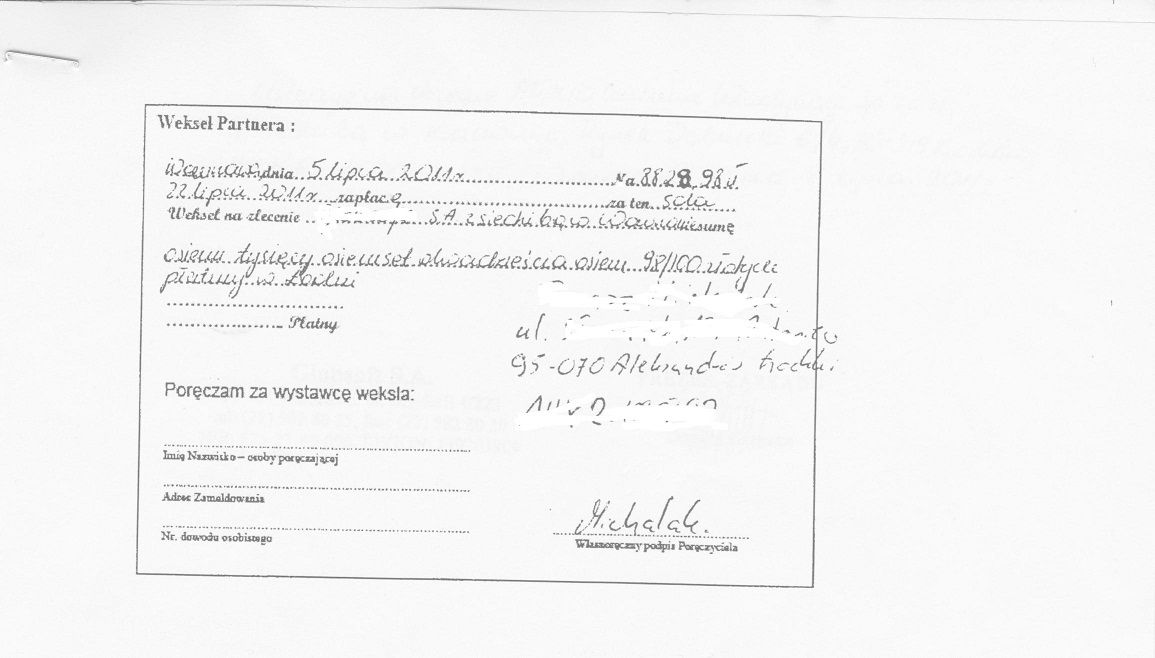 Weksel Partnera :
Warszawa, dnia 5 lipca 2011r Na 8828,98 zł
22 lipca 2011r zapłacę za ten sola
Weksel na zlecenie S.A. z siedzibą w Warszawie sumę
osiem tysięcy osiemset dwadzieścia osiem 98/100 złotych
płatny w Łodzi
Płatny
ul.
95-070 Aleksandrów Łódzki
Poręczam za wystawcę weksla:
Imię Nazwisko – osoby poręczającej
Adres Zameldowania
Michalak.
Nr. dowodu osobistego
Własnoręczny podpis Poręczyciela